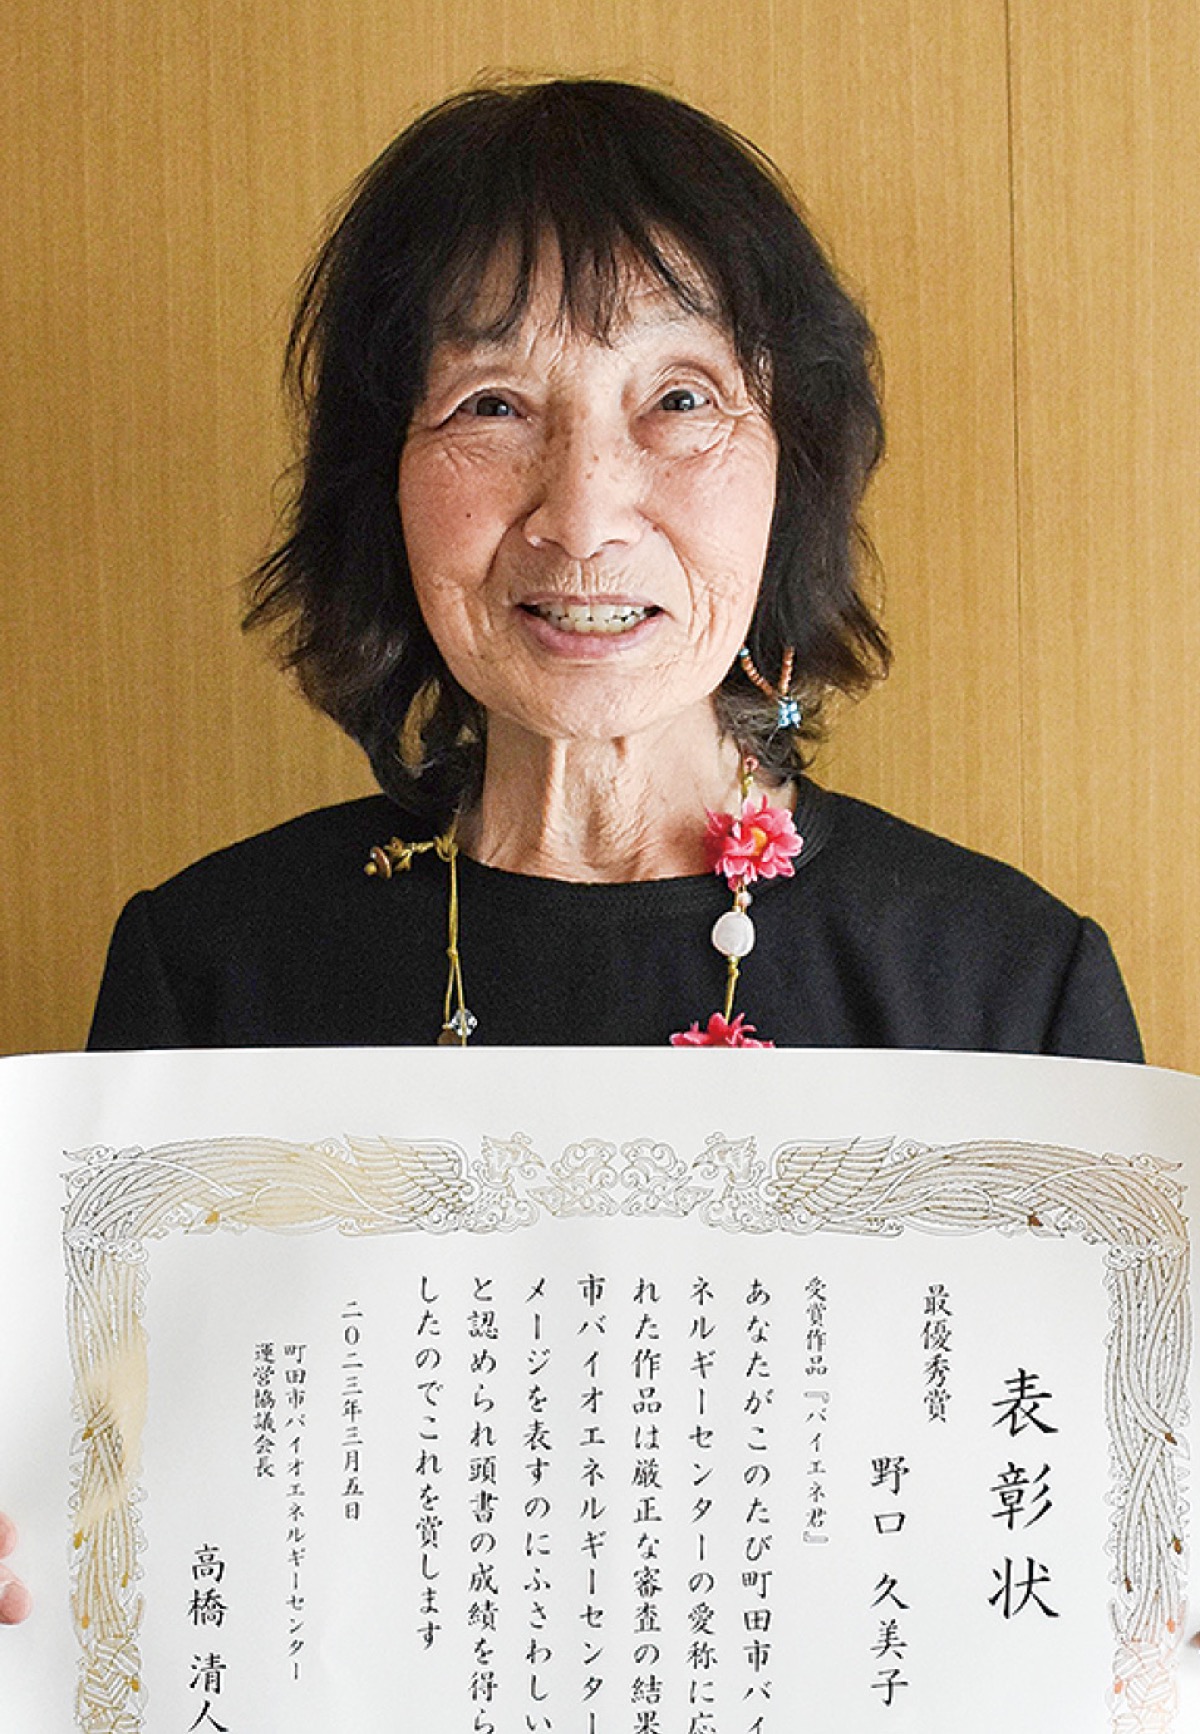 表彰状
最優秀賞
野口 久美子
受賞作品『バイエネ君』
あなたがこのたび町田市バイ
ネルギーセンターの愛称に応
れた作品は厳正な審査の結果
市バイオエネルギーセンター
メージを表すのにふさわしい
と認められ頭書の成績を得ら
したのでこれを賞します
二〇二三年三月五日
町田市バイオエネルギーセンター
運営協議会長
高橋 清人